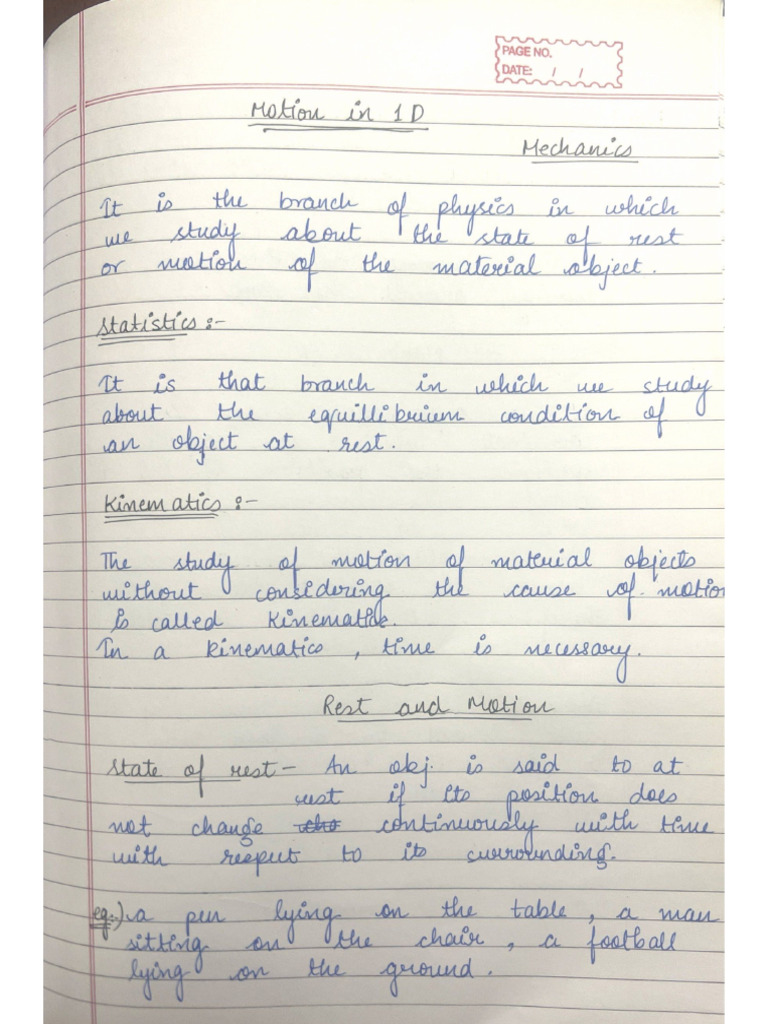 PAGE NO.
DATE: / /
Motion in 1D
Mechanics
It is the branch of physics in which
we study about the state of rest
or motion of the material object.
Statistics :-
It is that branch in which we study
about the equillibrium condition of
an object at rest.
Kinematics :-
The study of motion of material objects
without considering the cause of motion
is called Kinematic.
In a Kinematics, time is necessary.
Rest and Motion
State of rest - An obj. is said to at
rest if its position does
not change continuously with time
with respect to its surrounding.
eg:-) a pen lying on the table, a man
sitting on the chair, a football
lying on the ground.